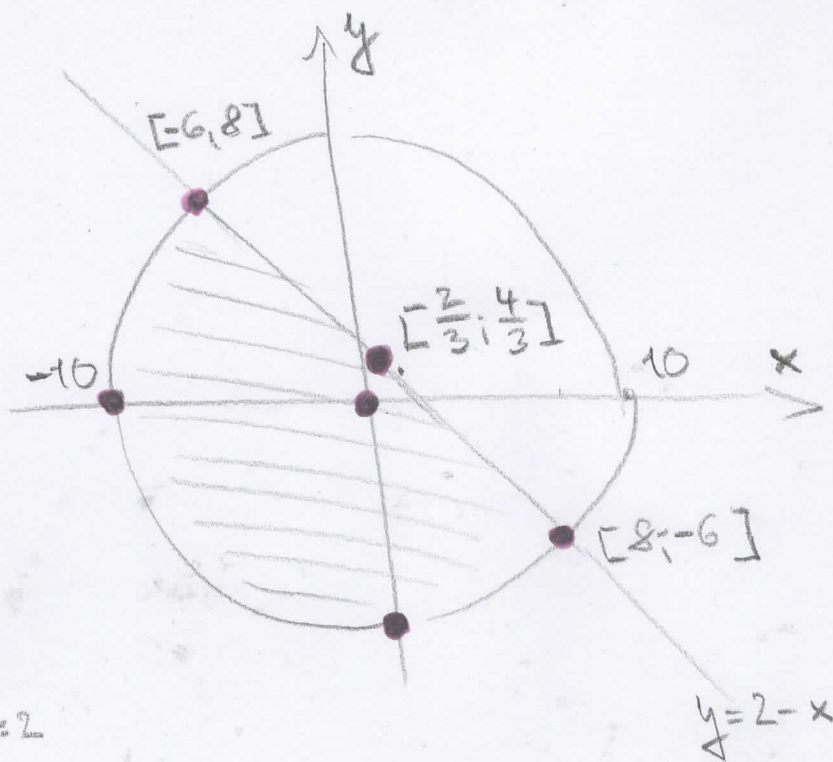 y
[-6,8]
[2/3; 4/3]
-10
10
x
[8;-6]
=2
y=2-x